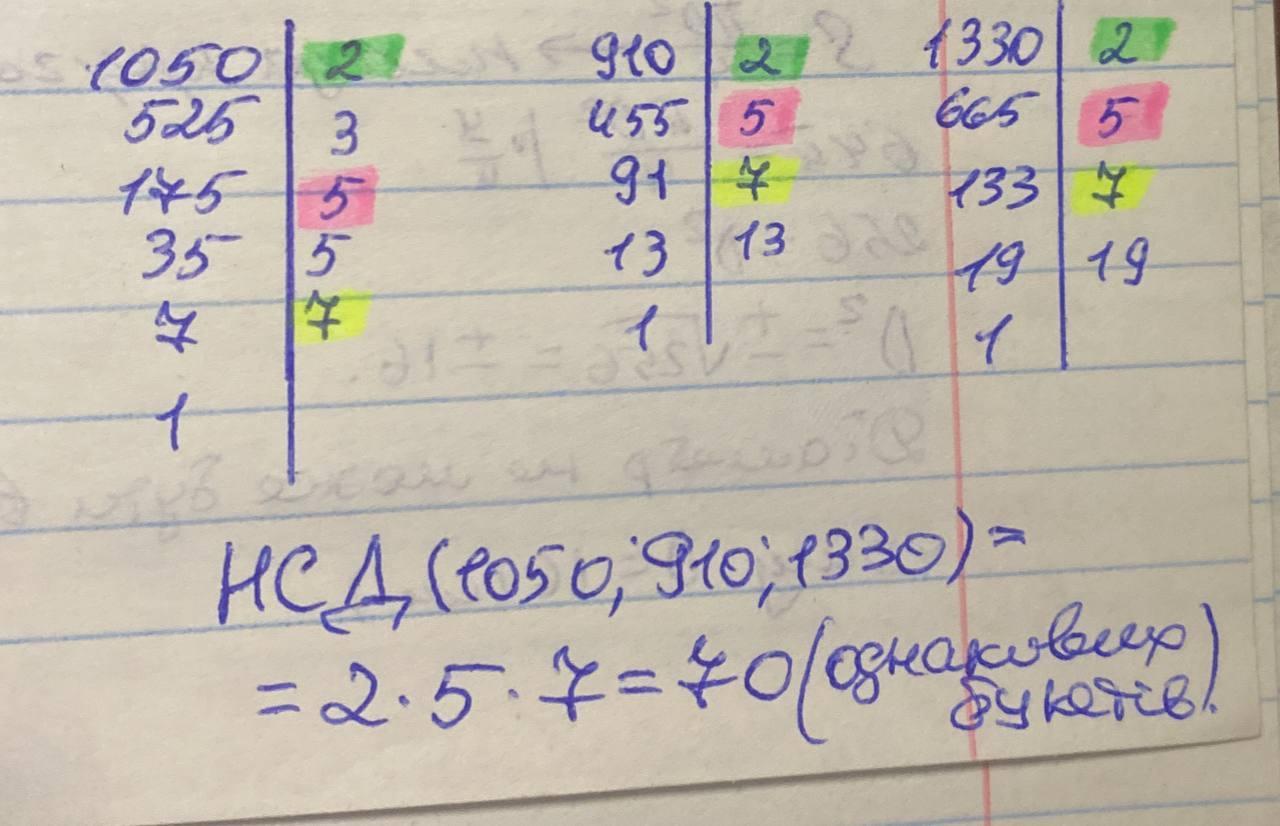 1050 | 2 910 | 2 1330 | 2
525 | 3 455 | 5 665 | 5
175 | 5 91 | 7 133 | 7
35 | 5 13 | 13 19 | 19
7 | 7 1 | 1 |
1 |
НСД (1050; 910; 1330) =
= 2 · 5 · 7 = 70 (однакових
букетів).